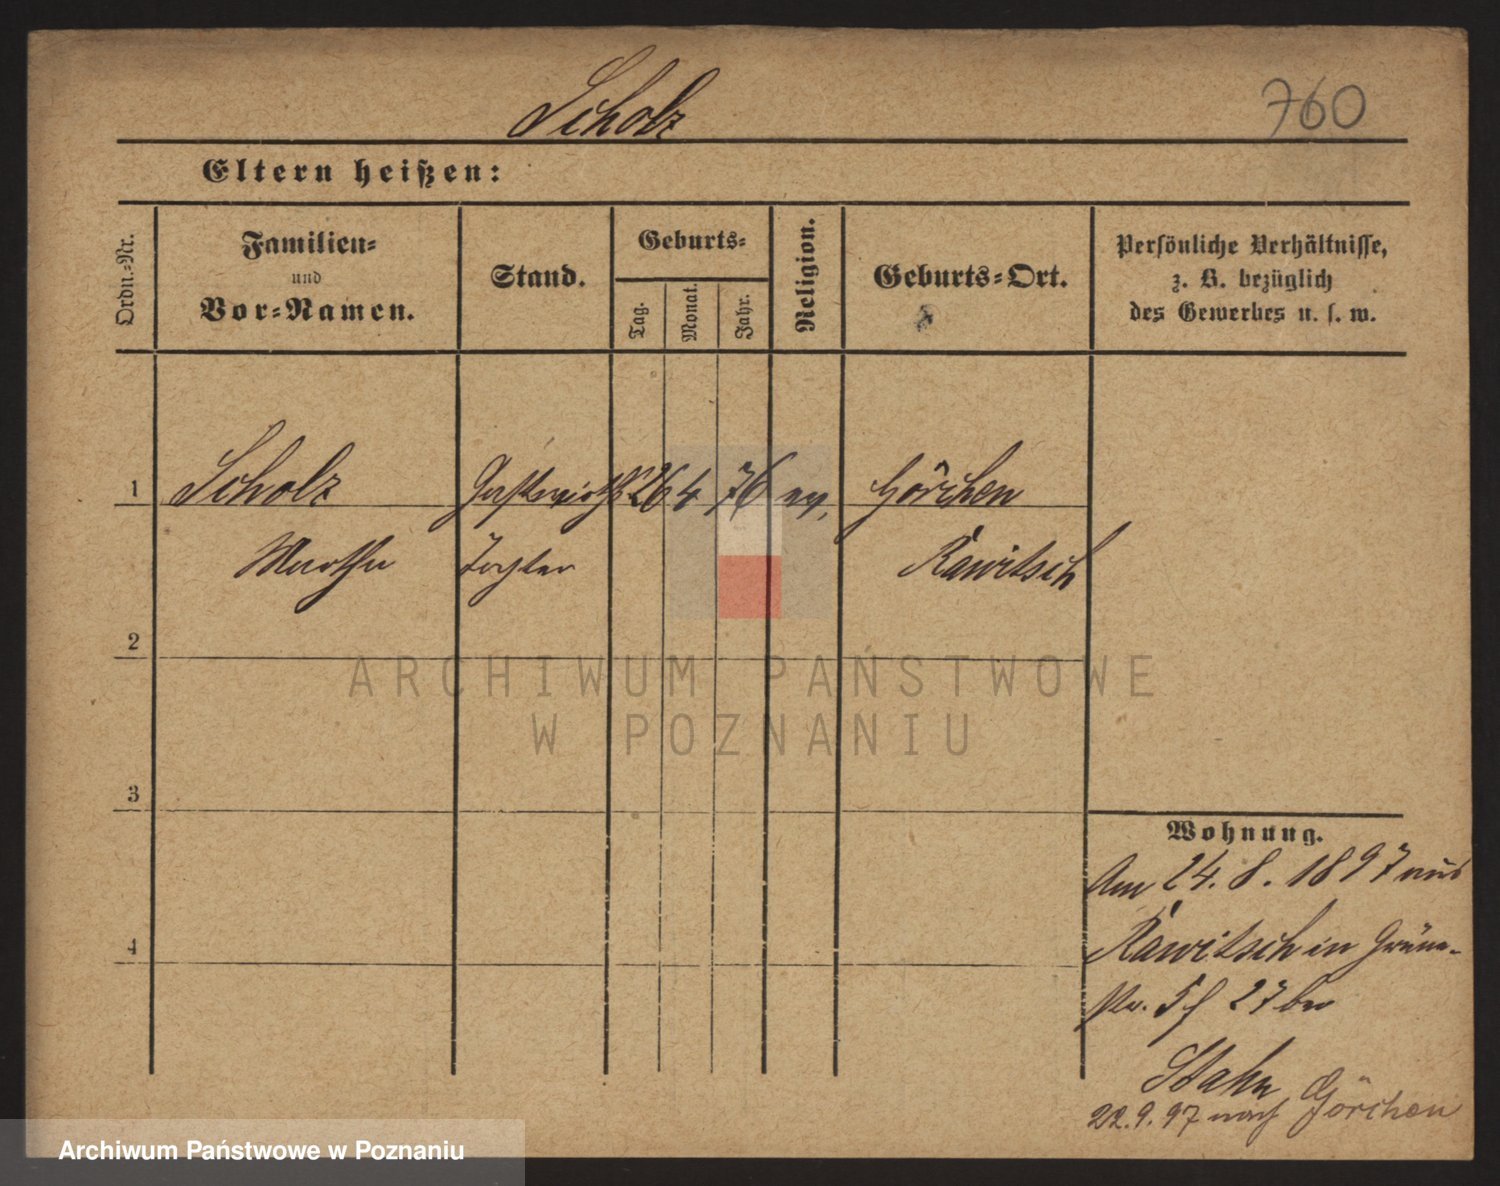 Scholz
760
Eltern heißen:
Ordn.-Nr.
Familien-
und
Vor-Namen.
Stand.
Geburts-
Tag.
Monat.
Jahr.
Religion.
Geburts-Ort.
Persönliche Verhältnisse,
z. B. bezüglich
des Gewerbes u. s. w.
1 Scholz Gastwirths 26 4 76 ev. Görchen
Martha Tochter Rawitsch
2
ARCHIWUM PAŃSTWOWE
W POZNANIU
3
Wohnung.
Am 24. 8. 1897 aus
4
Rawitsch in Grüne-
str. 5 27 bei
Stahn
22.9.97 nach Görchen
Archiwum Państwowe w Poznaniu